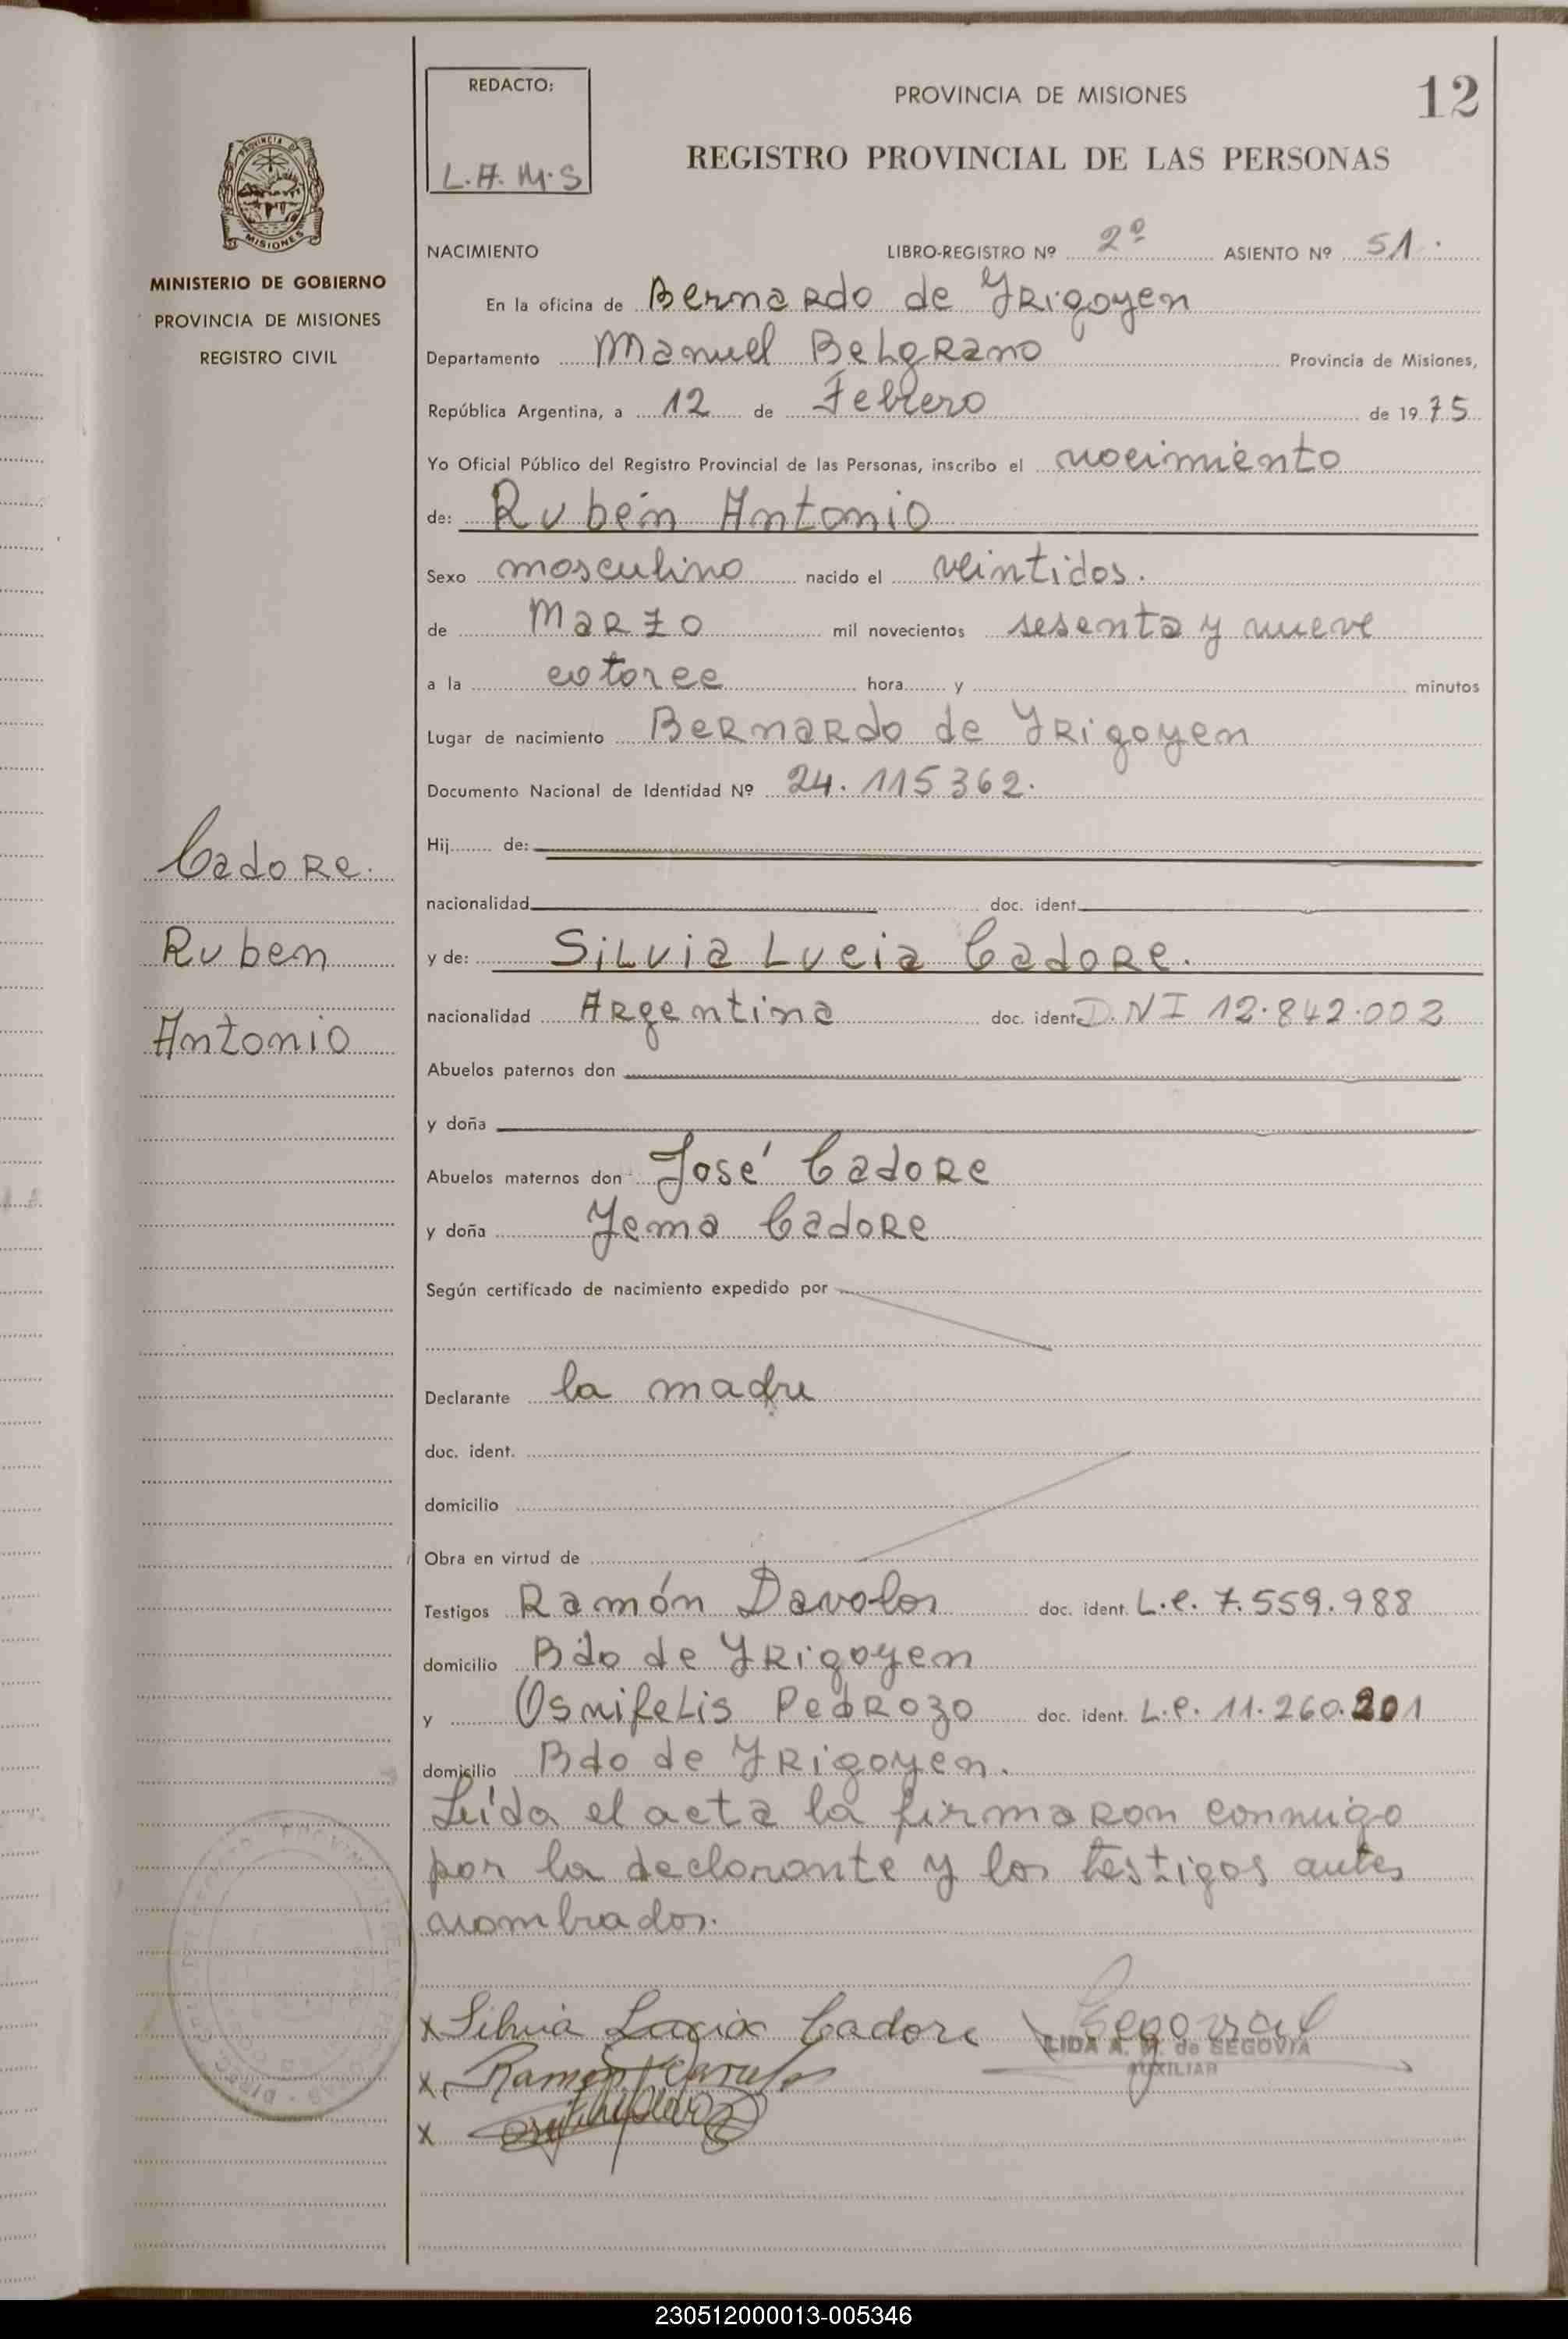 REDACTO:
L.A.M.S
PROVINCIA DE MISIONES
12
REGISTRO PROVINCIAL DE LAS PERSONAS
PROVINCIA DE
MISIONES
MINISTERIO DE GOBIERNO
PROVINCIA DE MISIONES
REGISTRO CIVIL
NACIMIENTO LIBRO-REGISTRO Nº 2º ASIENTO Nº 51.
En la oficina de Bernardo de Yrigoyen
Departamento Manuel Belgrano Provincia de Misiones,
República Argentina, a 12 de Febrero de 1975
Yo Oficial Público del Registro Provincial de las Personas, inscribo el nacimiento
de: Rubén Antonio
Sexo masculino nacido el veintidos.
de Marzo mil novecientos sesenta y nueve
a la catorce hora y minutos
Lugar de nacimiento Bernardo de Yrigoyen
Documento Nacional de Identidad Nº 24.115362.
Hij de:
nacionalidad doc. ident.
y de: Silvia Lucia Cadore.
nacionalidad Argentina doc. ident. D.N I 12.842.002
Abuelos paternos don
y doña
Abuelos maternos don José Cadore
y doña Yema Cadore
Según certificado de nacimiento expedido por
Declarante la madre
doc. ident.
domicilio
Obra en virtud de
Testigos Ramón Davalos doc. ident. L.e. 7.559.988
domicilio Bdo de Yrigoyen
y Osnifelis Pedrozo doc. ident. L.e. 11.260.201
domicilio Bdo de Yrigoyen.
Leída el acta la firmaron conmigo
por la declarante y los testigos antes
nombrados.
Cadore.
Ruben
Antonio
x Silvia Lucia Cadore
Segovia
LIDA A. M. de SEGOVIA
AUXILIAR
x Ramon Davalos
x
230512000013-005346